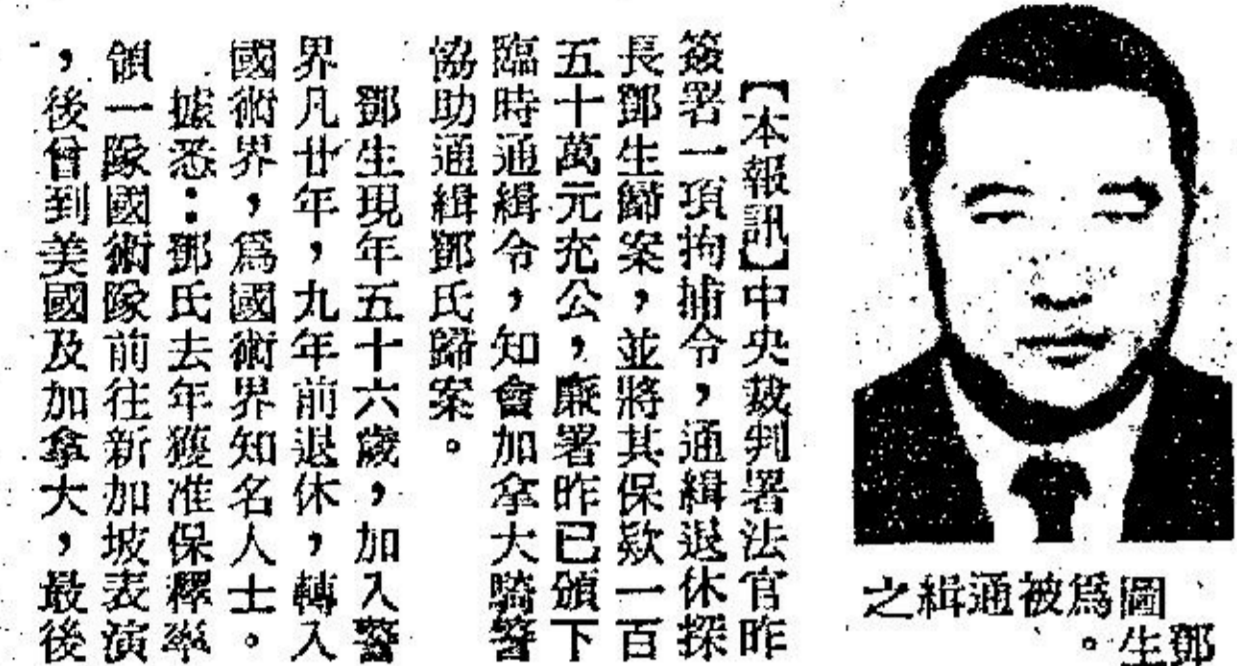 【本報訊】中央裁判署法官昨
簽署一項拘捕令，通緝退休探
長鄧生歸案，並將其保欵一百
五十萬元充公，廉署昨已頒下
臨時通緝令，知會加拿大騎警
協助通緝鄧氏歸案。
鄧生現年五十六歲，加入警
界凡廿年，九年前退休，轉入
國術界，爲國術界知名人士。
據悉：鄧氏去年獲准保釋率
領一隊國術隊前往新加坡表演
，後曾到美國及加拿大，最後
圖爲被通緝之
鄧生。